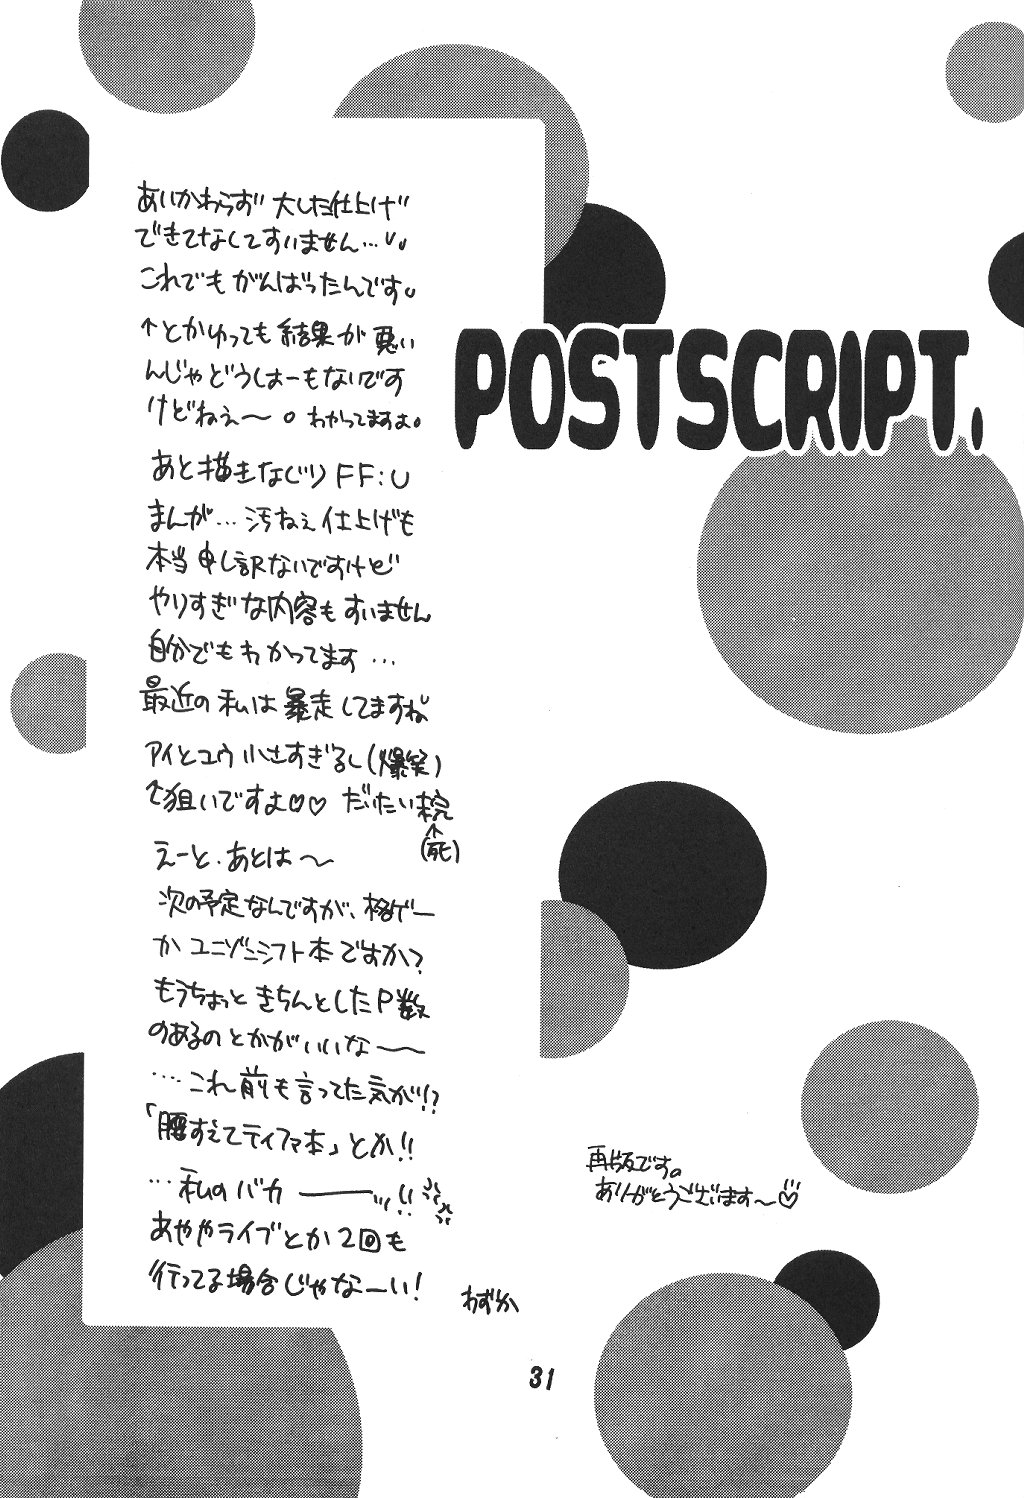 POSTSCRIPT.
あいかわらず 大した仕上げ
できてなくてすいません…
これでも がんばったんです。
↑とかゆっても 結果が 悪い
んじゃどうしよーもないです
けどねぇ〜。わかってますよ。
あと描きなぐり FF:U
まんが… 汚ねぇ仕上げも
本当 申し訳ないですけど
やりすぎな内容も すいません
自分でもわかってます…
最近の 私は 暴走してますね
アイとユウ 小さすぎるし(爆笑)
↑狙いですよ♡♡ だいたい
↑
(死)
えーと、あとは〜
次の予定なんですが、格ゲー
か ユニゾンシフト本ですか?
もうちょっと きちんとしたP数
のあるのとかがいいな〜
…これ 前も言ってた気が!?
「腰すえてティファ本」とか!!
…私のバカ ー!!
あややライブとか2回も
行ってる場合じゃなーい!
わずか
再版です。
ありがとうございます〜♡
31